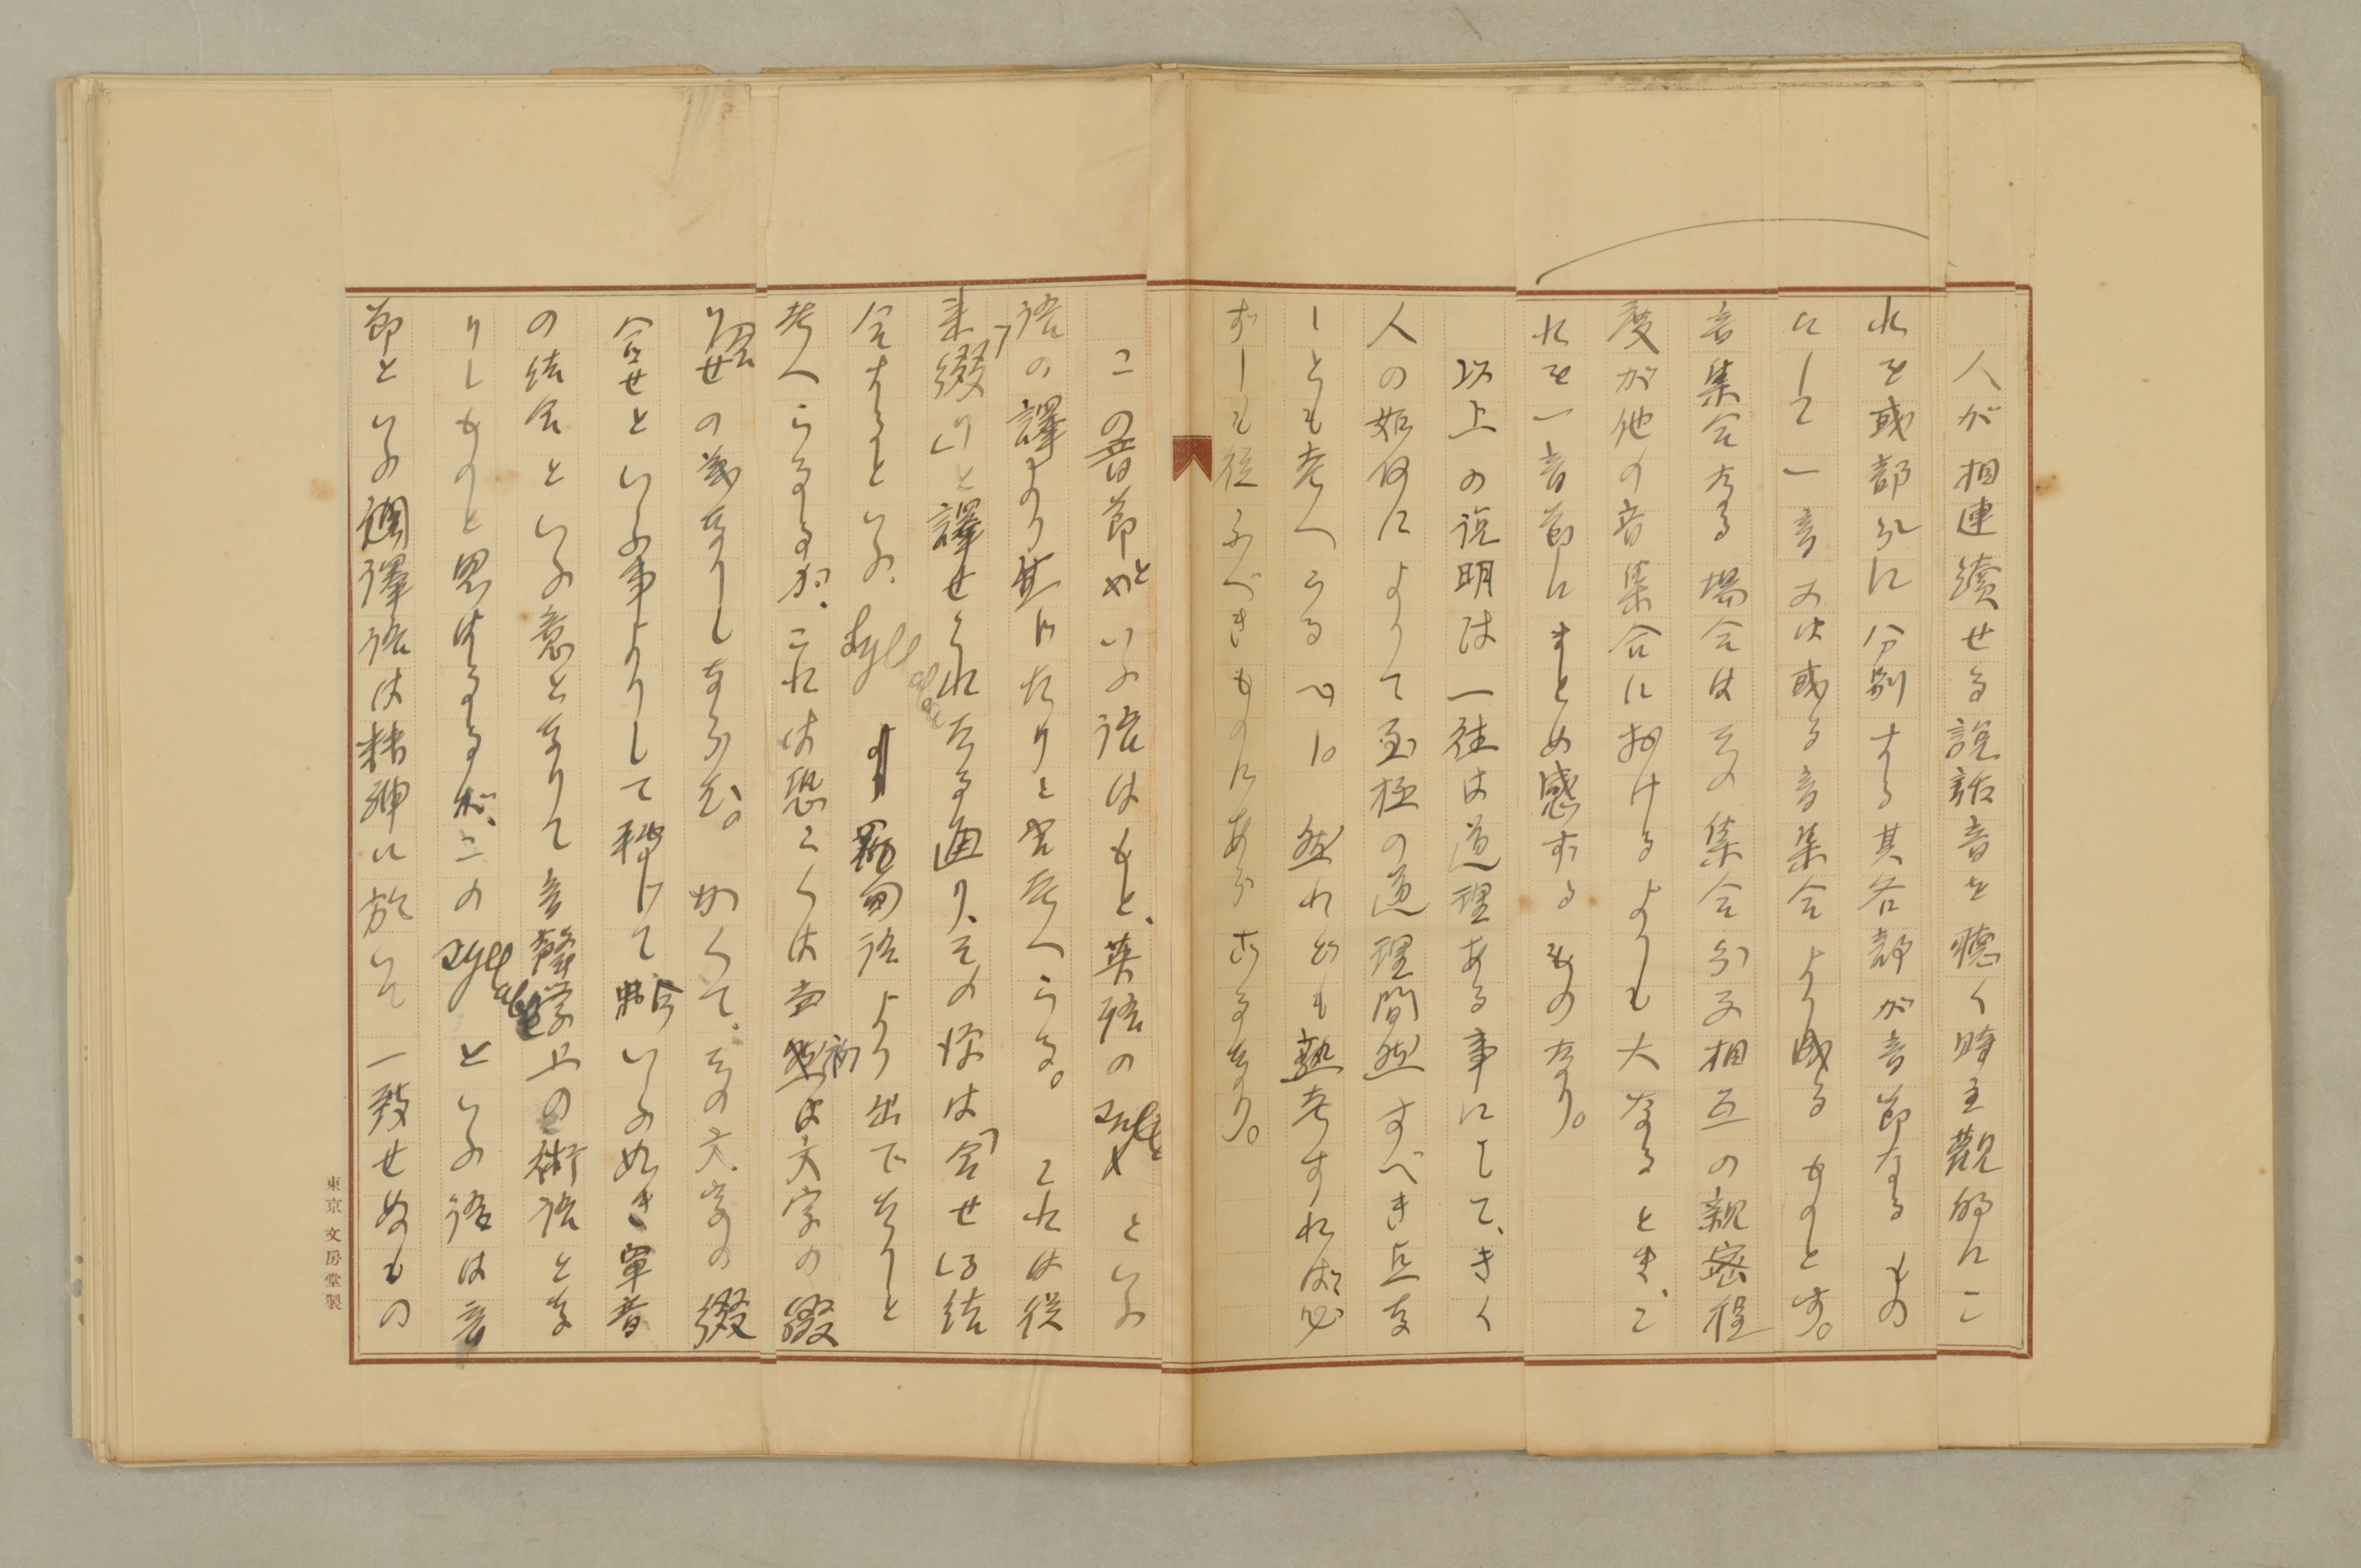 人が相連續せる説話音を聴く時主觀的にこ
れを或部分に分別する其各部が音節なるもの
にして一音又は或る音集合より成るものとす。
音集合なる場合はその集合分子相互の親密程
度が他の音集合におけるよりも大なるとき、こ
れを一音節にまとめ感ずるものなり。
以上の説明は一往は道理ある事にして、きく
人の如何によりて至極の道理間然すべき点な
しとも考へうる。然れども熟考すれば必
ずしも従ふべきものにあらざるなり。
この音節といふ語はもと、英語の といふ
語の譯より生じたりと考へらる。これは従
来「綴り」と譯せられたる通り、その は「合せ」「結
合すると」いふ。syllabe 羅甸語より出でたりと
考へらるるが、これは恐くは当初は文字の綴
り合せの義なりしならむ。かくて、その文字の綴
合せといふ事よりして転じて いふ如き単音
の結合といふ意となりて音聲学上の術語とな
りしものと思はるるが、この syllable といふ語は音
節といふ飜譯語は精神に於いて一致せぬもの
東京 文房堂製